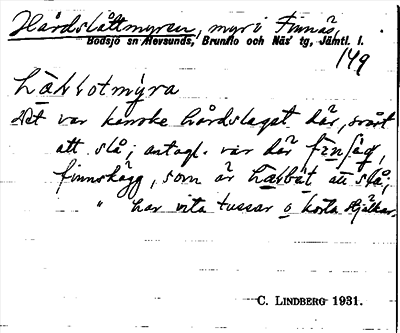 Hårdslåttmyren, myr i Finnäs,
Bodsjö sn Revsunds, Brunflo och Näs tg, Jämtl. l.
149
Det var kanske hårdslaget där, svårt
att slå; antagl. var där
finnskägg, som är att slå;
" har vita tussar o korta stjälkar.
C. LINDBERG 1931.